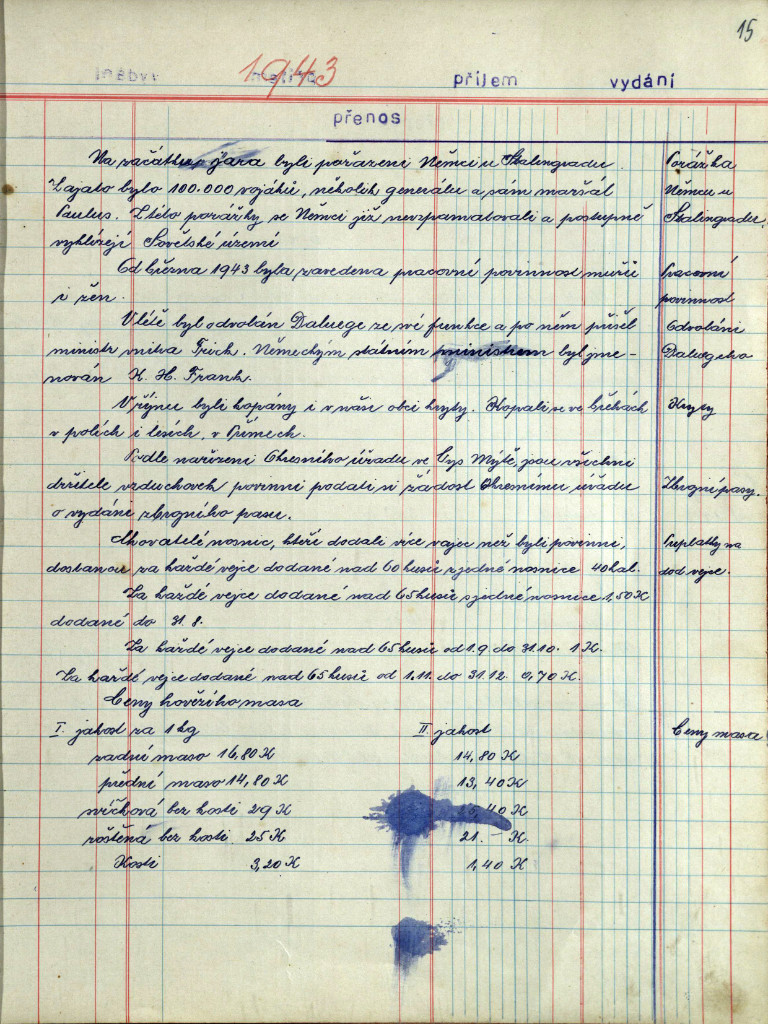 15
1943
příjem
vydání
přenos
Na začátku jara byli poraženi Němci u Stalingradu. Porážka
Zajato bylo 100.000 vojáků, několik generálu a sám maršál Němcu u
Paulus. Z této porážky se Němci již nevzpamatovali a postupně Stalingradu.
vyklízejí Sovětské území
Od března 1943 byla zavedena pracovní povinnost mužů Pracovní
i žen. povinnost
V létě byl odvolán Daluege ze své funkce a po něm přišel Odvolání
ministr vnitra Frick. Německým státním ministrem byl jme- Daluegeho
nován K. H. Frank.
V říjnu byli kopány i v naši obci kryty. Kopali se ve břehách Kryty
v polích i lesích, v Průmech.
Podle nařízení Okresního úřadu ve Vys Mýtě, jsou všichni
držitele vzduchovek povinni podati si žádost Okresnímu úřadu Zbrojní pasy.
o vydáni zbrojního pasu.
Chovatelé nosnic, kteří dodali více vajec než byli povinni, Puplatky na
dostanou za každé vejce dodané nad 60 kusů z jedné nosnice 40 hal. dod vejce.
Za každé vejce dodané nad 65 kusů s jedné nosnice 1,50 K
dodané do 31.8.
Za každé vejce dodané nad 65 kusů od 1.9. do 31.10. 1 K.
Za každé vejce dodané nad 65 kusů od 1.11. do 31.12. 0,70 K.
Ceny hovězího masa
I. jakost za 1 kg II jakost Ceny masa
zadní maso 16,80 K 14,80 K
přední maso 14,80 K 13,40 K
svíčková bez kosti 29 K 40 K
roštěná bez kosti. 25 K 21.- K.
Kosti 3,20 K 1,40 K